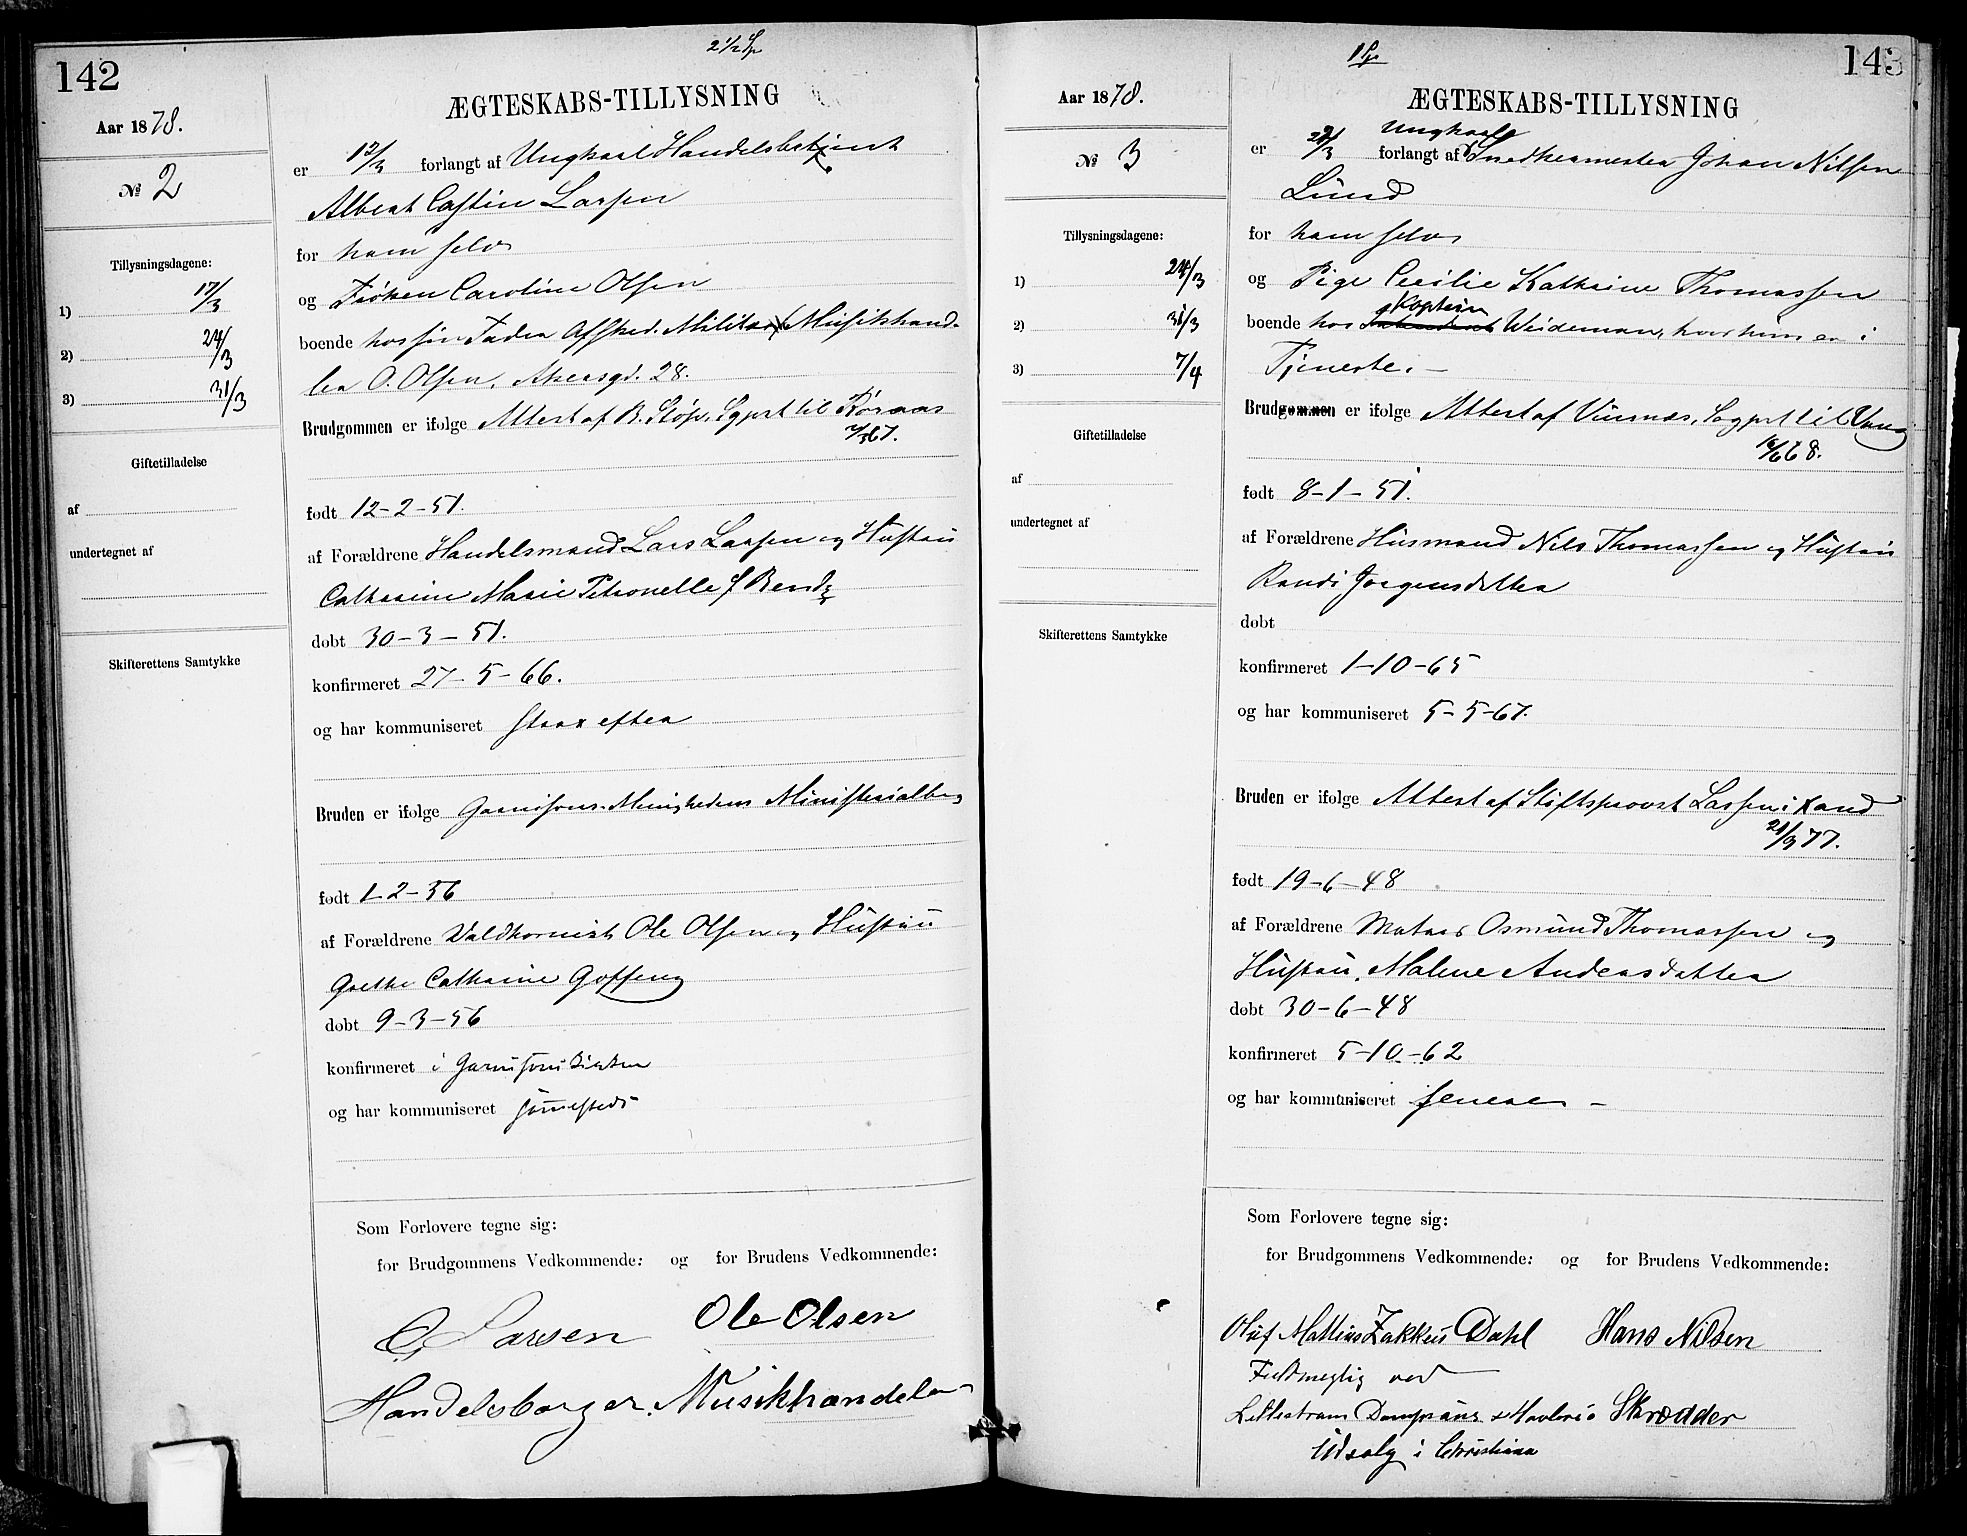 142
2 1/2 Sp
Aar 1878.
No 2
Tillysningsdagene:
1) 17/3
2) 24/3
3) 31/3
Giftetilladelse
af
undertegnet af
Skifterettens Samtykke
ÆGTESKABS-TILLYSNING
er 12/3 forlangt af Ungkarl Handelsbetjent
Albert Larsen
for ham selv
og Frøken Caroline Olsen
boende hos sin Fader Afsked. Musikhand-
ler O. Olsen, Akersgd. 28.
Brudgommen er ifølge Attest af B. Støp, Sgprt til Røraas
67.
født 12-2-51.
af Forældrene Handelsmand Lars Larsen og Hustru
Catharine Marie Petronelle f
døbt 30-3-51.
konfirmeret 27-5-66.
og har kommuniseret strax efter
Bruden er ifølge Garnisons-Menighedens Ministerialbog
født 1-2-56
af Forældrene Valdhornist Ole Olsen og Hustru
Grethe Cathrine Goffeng
døbt 9-3-56
konfirmeret i Garnisonskirken
og har kommuniseret sammesteds
Som Forlovere tegne sig:
for Brudgommens Vedkommende: og for Brudens Vedkommende:
Larsen Ole Olsen
Handelsborger. Musikhandeler
143
1 Sp
Aar 1878.
No 3
Tillysningsdagene:
1) 24/3
2) 31/3
3) 7/4
Giftetilladelse
af
undertegnet af
Skifterettens Samtykke
ÆGTESKABS-TILLYSNING
Ungkarl
er 21/3 forlangt af Snedkermester Johan Nilsen
Lund
for ham selv
og Pige Cecilie Kathrine Thomassen
Kaptein
boende hos Weideman, hvor hun er i
Tjeneste.
Brudgommen er ifølge Attest af Viersnæs, Sogprt til Vang
16/6 68.
født 8-1-51.
af Forældrene Husmand Nils Thomassen og Hustru
Randi Jørgensdatter
døbt
konfirmeret 1-10-65
og har kommuniseret 5-5-67.
Bruden er ifølge Attest af Stiftsprovst Lassen i Xsand
21/9 77.
født 19-6-48
af Forældrene Matros Osmund Thomassen og
Hustru, Malene Andersdatter
døbt 30-6-48
konfirmeret 5-10-62
og har kommuniseret senere
Som Forlovere tegne sig:
for Brudgommens Vedkommende: og for Brudens Vedkommende:
Oluf Mattius Zakkeus Dahl Hans Nilsen
ved
Lillestrøm Dampsaug & Høvleris Skrædder
Udsalg i Christiania